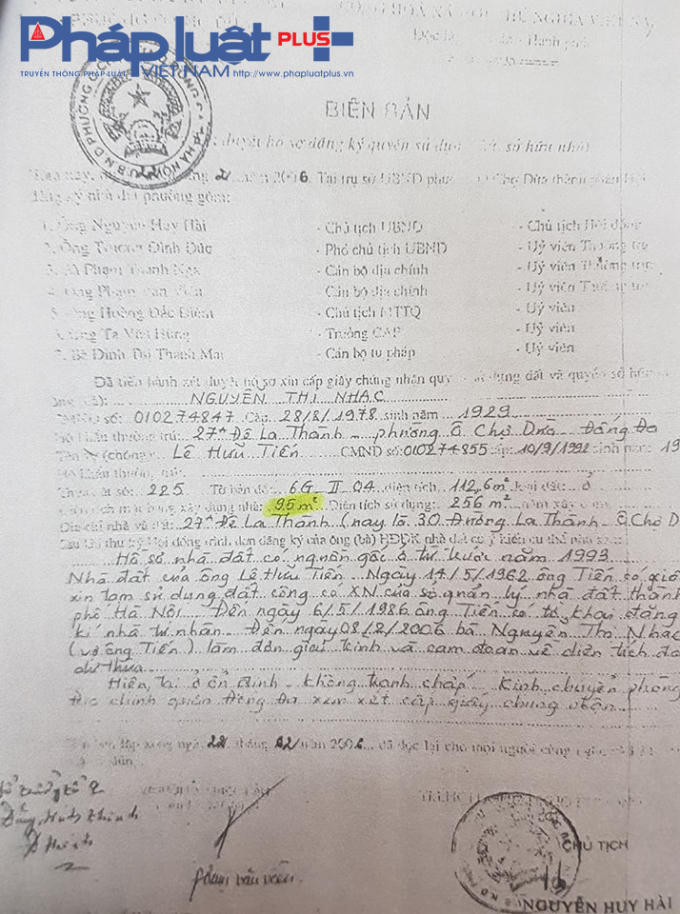 Pháp luật PLUS
TRUYỀN THÔNG PHÁP LUẬT VIỆT NAM http://www.phapluatplus.vn
BIÊN BẢN
duyệt hồ sơ đăng ký quyền sử dụng sở hữu nhà
năm 2006. Tại trụ sở UBND Chợ Dừa thành phố
gồm:
1. Ông Nguyễn Huy Hải - Chủ tịch UBND - Chủ tịch Hội đồng
2. Ông Trương Đình Đức - Phó chủ tịch UBND - Uỷ viên Thường trực
3. Bà Phạm Thanh Nga - Cán bộ địa chính - Uỷ viên Thường trực
4. Ông Phạm Văn Viên - Cán bộ địa chính - Uỷ viên Thường trực
5. Ông Hoàng Đắc Điềm - Chủ tịch MTTQ - Uỷ viên
6. Ông Tạ Văn Hùng - Trưởng CAP - Uỷ viên
7. Bà Đinh Thị Thanh Mai - Cán bộ tư pháp - Uỷ viên
Đã tiến hành xét duyệt hồ sơ xin cấp giấy chứng nhận quyền sử dụng đất và quyền sở hữu
NGUYỄN THỊ NHẠC
số: 010274847 Cấp: 28/8/1978 sinh năm 1929
Hộ khẩu thường trú: 27ᵃ Đê La Thành - phường Ô Chợ Dừa - Đống Đa
Tên (chồng) Lê Hữu Tiến CMND số: 010274855 cấp: 10/9/1992 sinh năm: 19
Hộ khẩu thường trú:
Thửa đất số: 225 Tờ bản đồ: 6G-II-04 diện tích 112,6m² loại đất: ở
Diện tích mặt bằng xây dựng nhà: 95m² Diện tích sử dụng: 256 m² năm xây
Địa chỉ nhà và đất: 27ᵃ Đê La Thành (nay là 30 Đường La Thành - Ô Chợ D
Sau khi thư ký Hội đồng trình đơn đăng ký của ông (bà) HĐĐK nhà đất có ý kiến cụ thể như sau:
Hồ sơ nhà đất có nguồn gốc ở từ trước năm 1993
Nhà đất của ông Lê Hữu Tiến. Ngày 14/5/1962 ông Tiến có giấy
xin tạm sử dụng đất công có XN của sở quản lý nhà đất thành
phố Hà Nội - Đến ngày 6/5/1986 ông Tiến có tờ khai đăng
kí nhà tư nhân. Đến ngày 08/2/2006 bà Nguyễn Thị Nhạc
(vợ ông Tiến) làm đơn giải trình và cam đoan về diện tích đất
dư thừa
Hiện tại ở ổn định - không tranh chấp. Kính chuyển phòng
Địa chính quận Đống Đa xem xét cấp giấy chứng nhận
ngày 22 tháng 02 năm 2006 đã đọc lại cho mọi người cùng nghe
Phạm Văn Viên
CHỦ TỊCH
NGUYỄN HUY HẢI